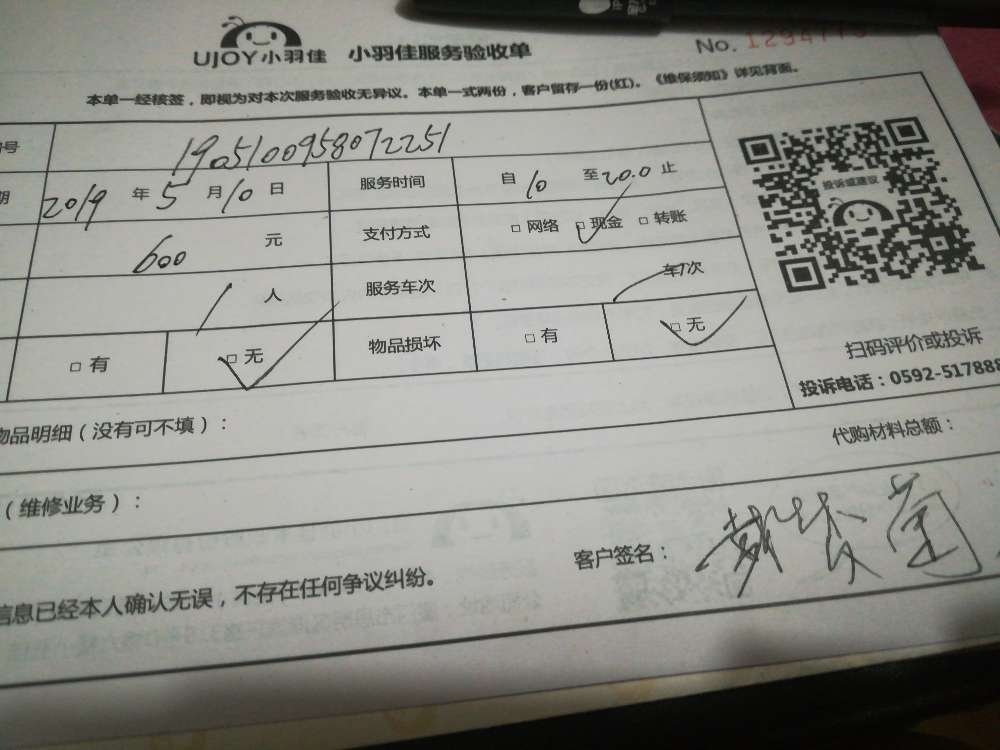 UJOY小羽佳 小羽佳服务验收单 No.
本单一经核签，即视为对本次服务验收无异议。本单一式两份，客户留存一份(红)。《维保须知》详见背面。
号 1905100958072251
期 2019 年 5 月 10 日 服务时间 自 10 至 20.0 止
600 元 支付方式 □ 网络 □ 现金 □ 转账
1 人 服务车次 车/次
□ 有 □ 无 物品损坏 □ 有 □ 无
投诉或建议
扫码评价或投诉
投诉电话：0592-517888
物品明细（没有可不填）：
代购材料总额：
（维修业务）：
客户签名：
信息已经本人确认无误，不存在任何争议纠纷。